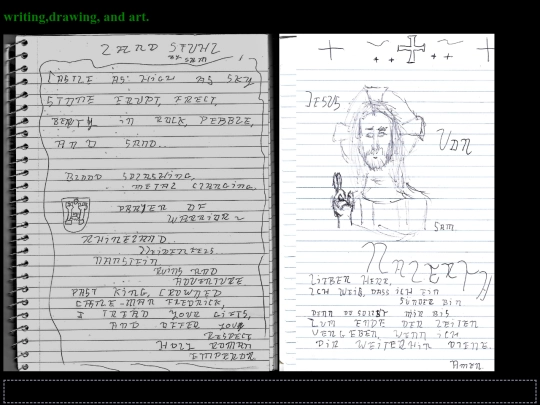 writing,drawing, and art.
BY SAM
CASTLE AS HIGH AS SKY
STONE ERUPT, ERECT,
in ROCK, PEBBLE,
AND SAND..
BLOOD SPLASHING,
METAL CLANGING.
PRAYER OF
WARRIOR
RHINELAND..
NANSTEIN
RUINS AND
ADVENTURE
PAST KING, CROWNED
FREDRICK,
I TREAD YOUR CLIFFS,
AND OFFER YOUR
RESPECT
HOLY ROMAN
EMPEROR
JESUS
VON
SAM
NAZERTH
LIEBER HERR,
ICH WEIß, DASS ICH EIN
SUNDER BIN
DENN DU MIR BIS
ZUM ENDE DER ZEITEN
VERGEBEN, WENN ICH
DIR WEITERHIN DIENE.
Amen